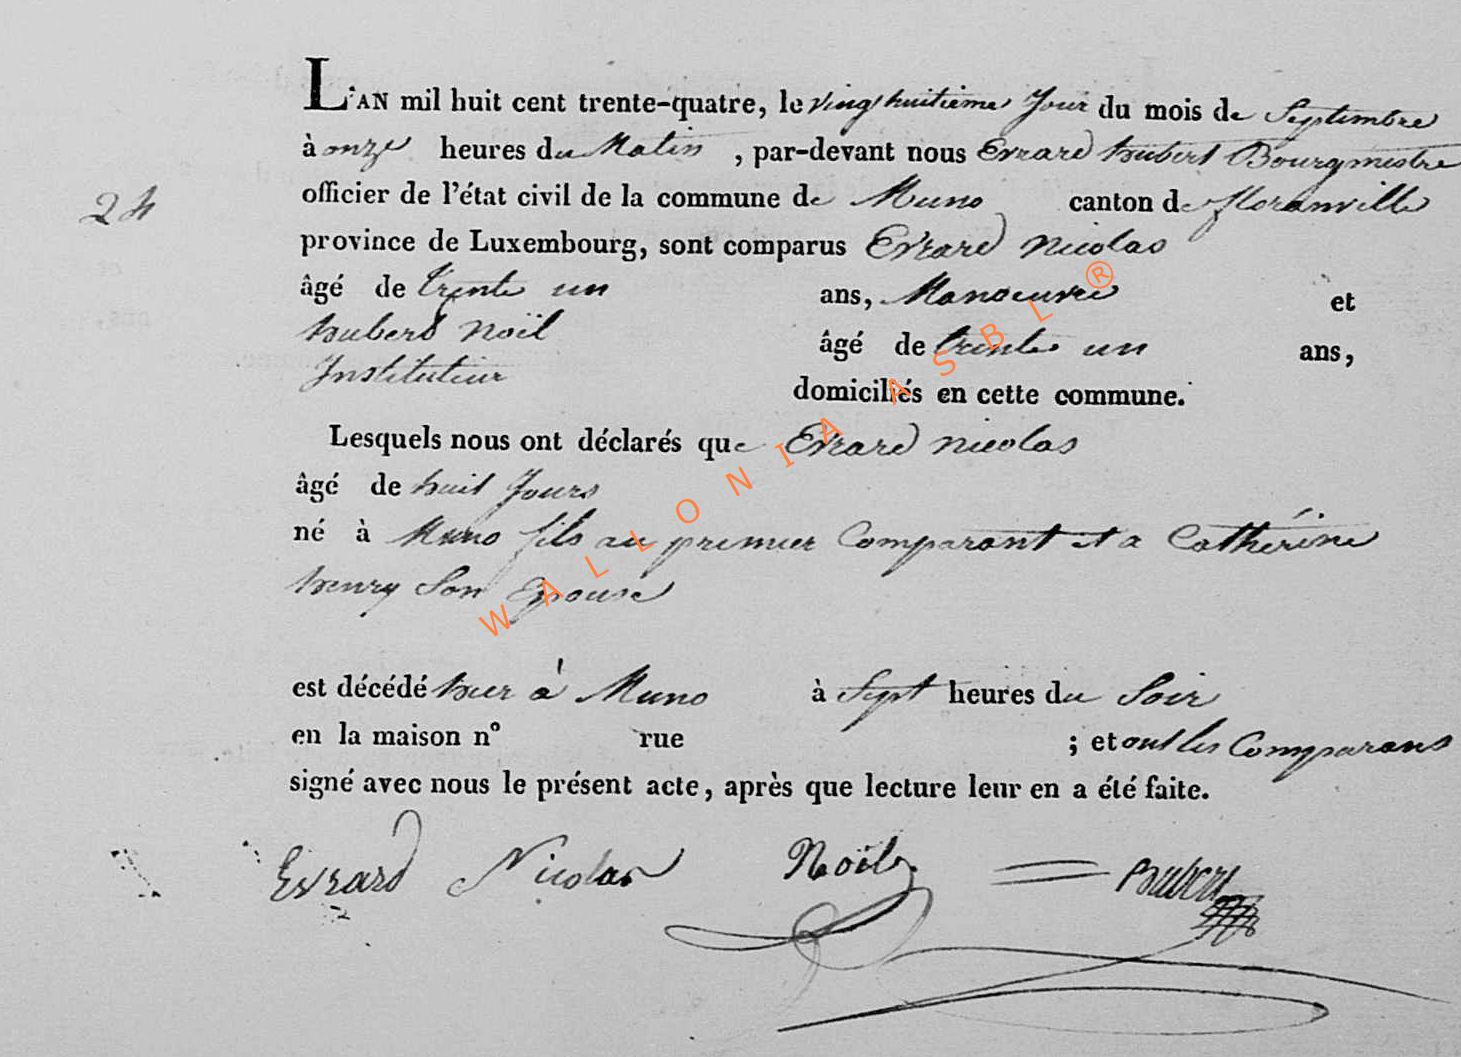 L'AN mil huit cent trente-quatre, le vingt huitieme Jour du mois de Septembre
à onze heures du Matin, par-devant nous Evrard hubert Bourgmestre
24
officier de l'état civil de la commune de Muno canton de florenville
province de Luxembourg, sont comparus Evrard Nicolas
âgé de trente un ans, Manoeuvre et
hubert Noël âgé de trente un ans,
Instituteur domiciliés en cette commune.
Lesquels nous ont déclarés que Evrard Nicolas
âgé de huit Jours
né à Muno fils au premier Comparant et a Cathérine
henry Son Epouse
est décédé hier à Muno à Sept heures du Soir
en la maison nº rue ; et ont les Comparans
signé avec nous le présent acte, après que lecture leur en a été faite.
Evrard Nicolas Noël = hubert
WALLONIA ASBL ®